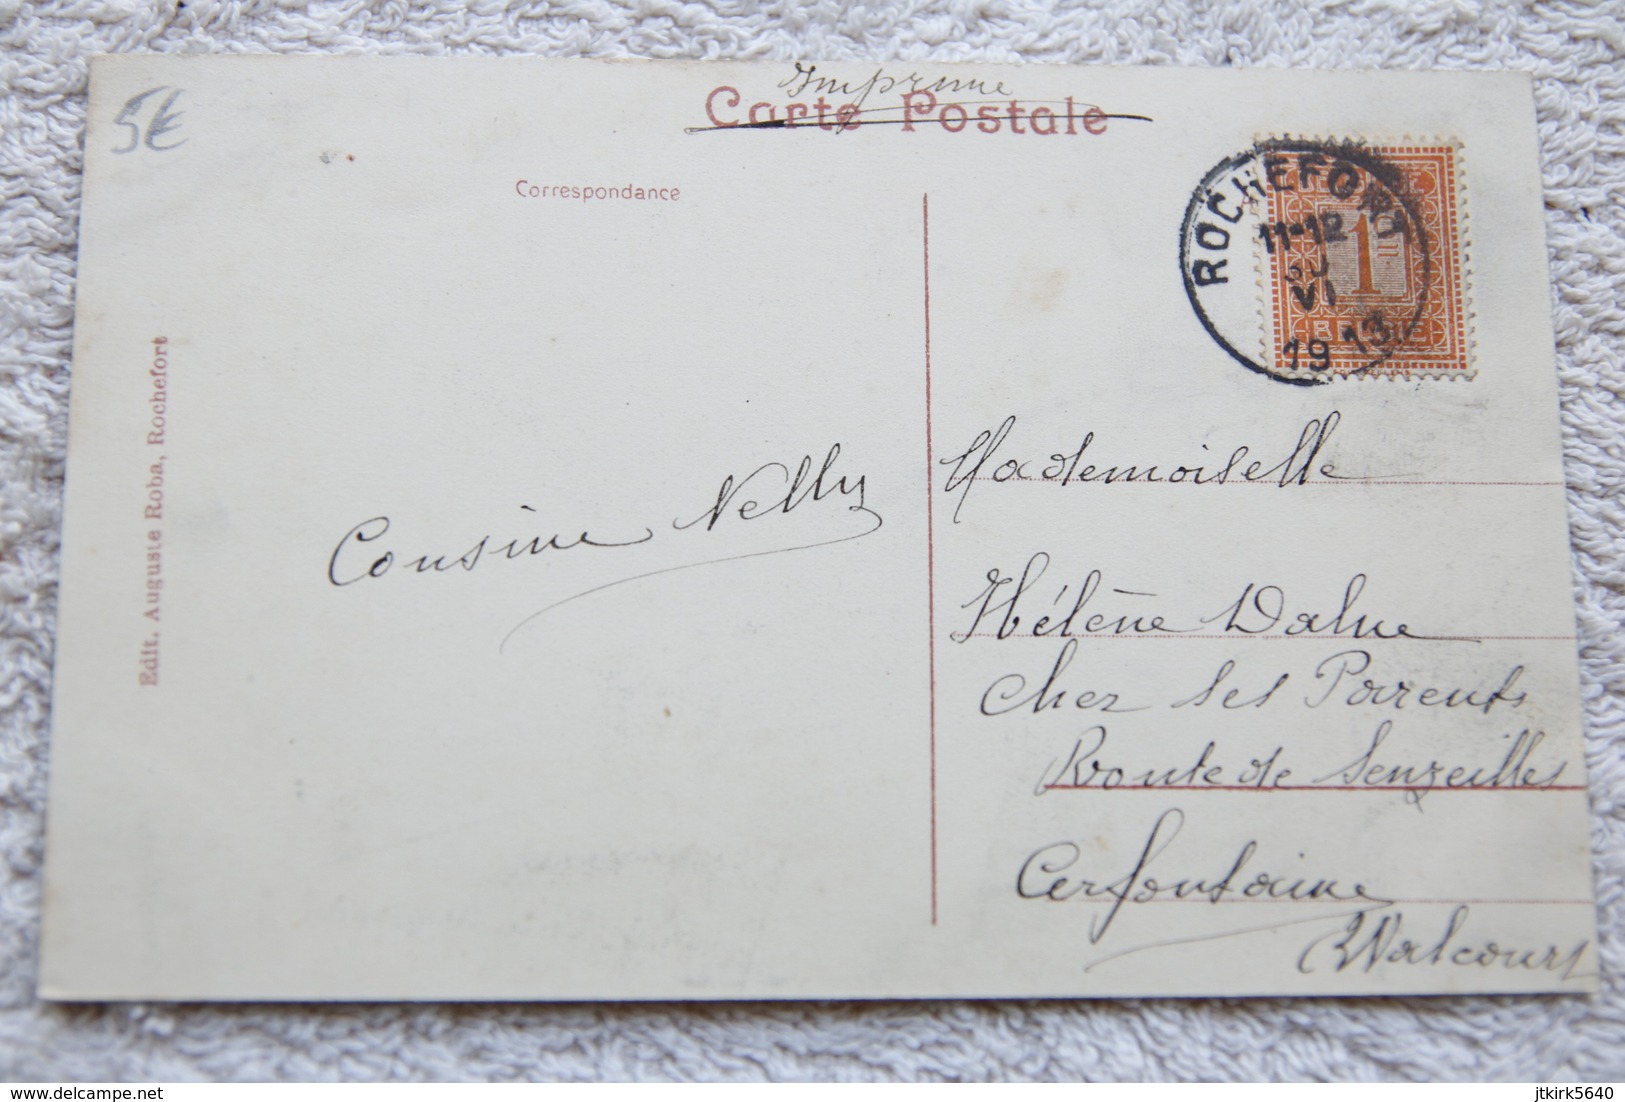 5€
Imprimé
Carte Postale
Correspondance
ROCHEFORT
11-12
VI
1913
1
BELGIE
Edit. Auguste Roba, Rochefort
Cousine Nelly
Mademoiselle
Hélène
Chez ses Parents
Route de Senzeilles
Cerfontaine
Walcourt
delcampe.net
jtkirk5640